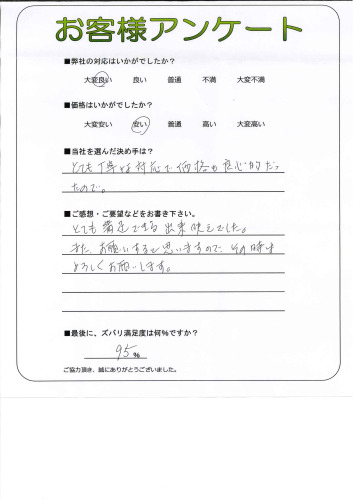 お客様アンケート
■弊社の対応はいかがでしたか?
大変良い 良い 普通 不満 大変不満
■価格はいかがでしたか?
大変安い 安い 普通 高い 大変高い
■当社を選んだ決め手は?
とても丁寧な対応で価格も良心的だっ
たので。
■ご感想・ご要望などをお書き下さい。
とても満足できる出来映えでした。
また、お願いすると思いますので、その時は
よろしくお願いします。
■最後に、ズバリ満足度は何%ですか?
95 %
ご協力頂き、誠にありがとうございました。